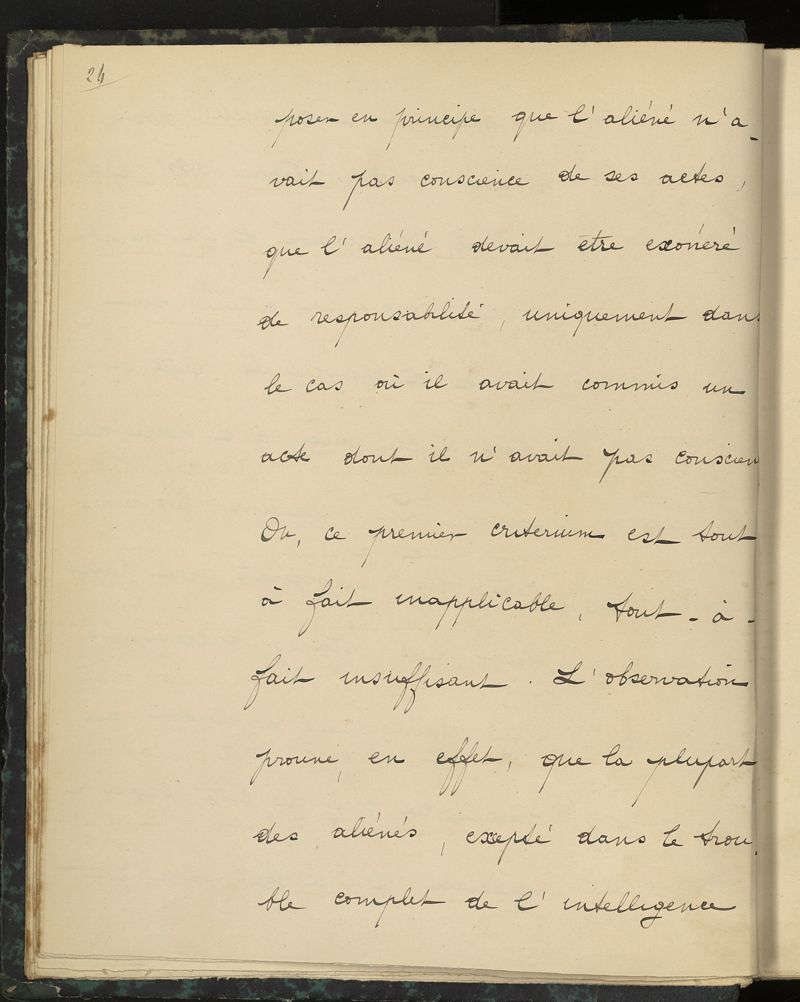 24
poser en principe que l'aliéné n'a-
vait pas conscience de ses actes,
que l'aliéné devait etre exonéré
de responsabilité, uniquement dans
le cas où il avait commis un
acte dont il n'avait pas conscien
Or, ce premier criterium est tout
à fait inapplicable, tout-à-
fait insuffisant. L'observation
prouve, en effet, que la plupart
des aliénés, excepté dans le trou-
ble complet de l'intelligence